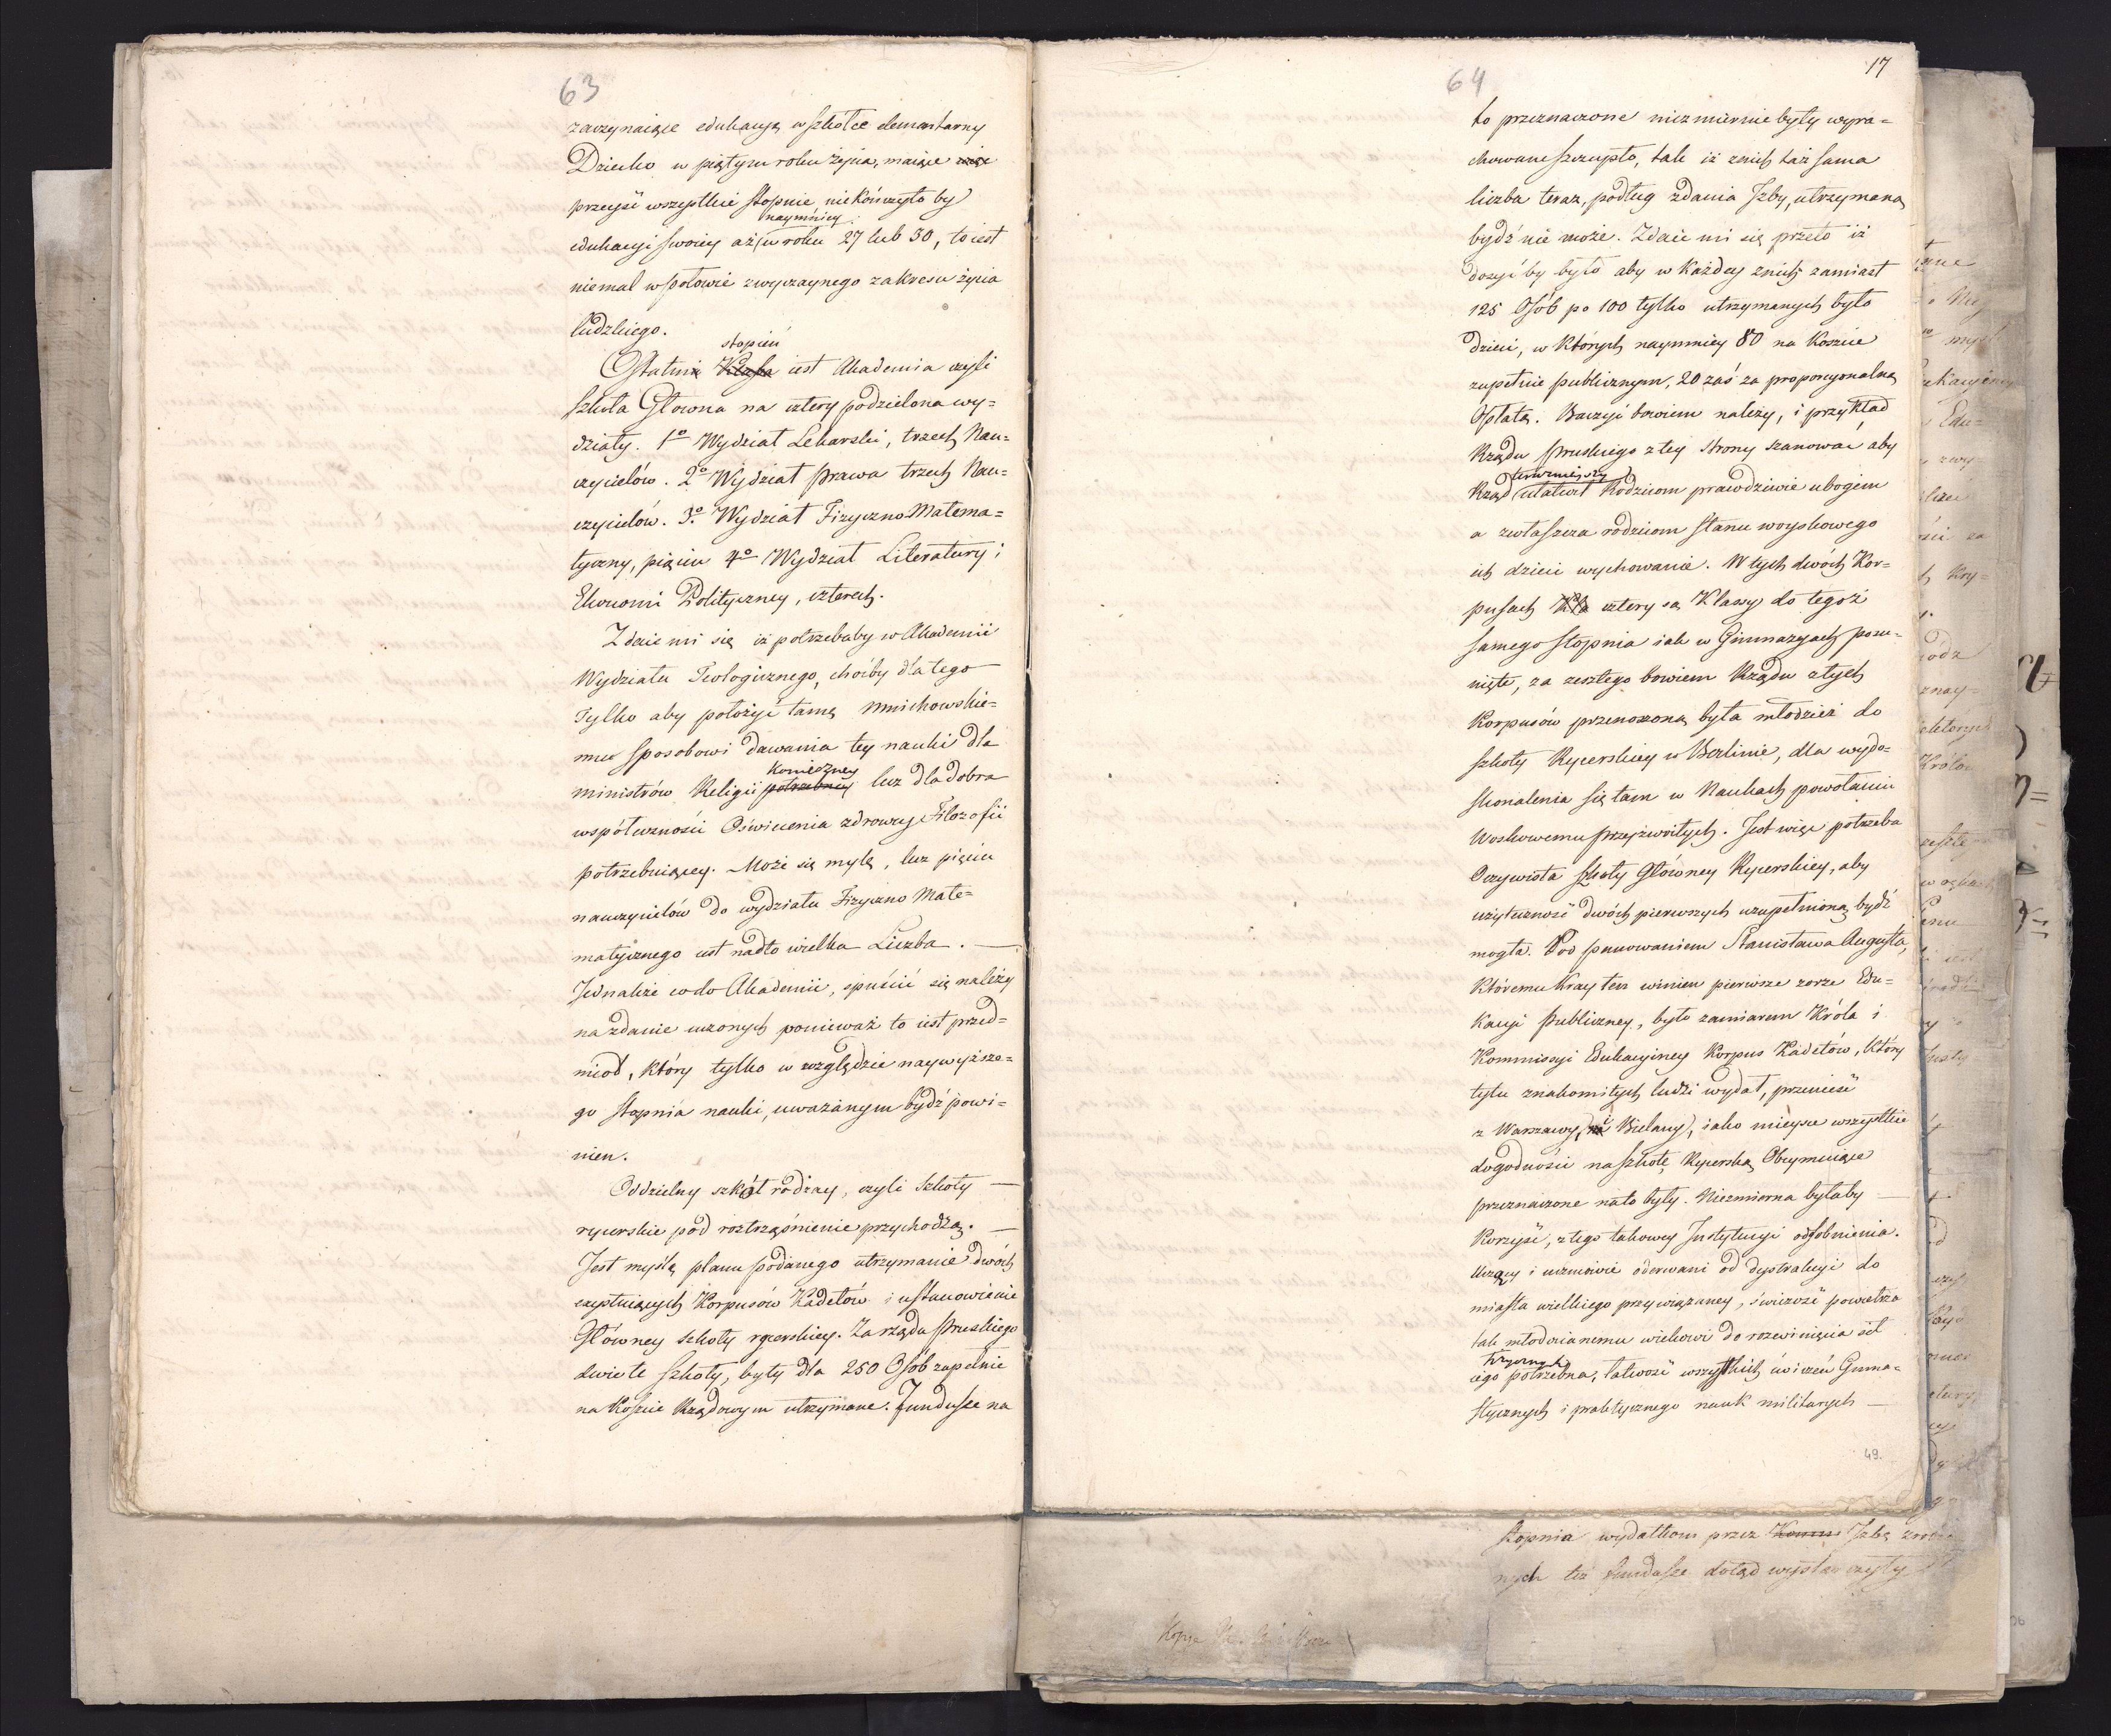 63
zaczynaiące edukacyą w szkołce elementarny
Dziecko w piątym roku życia, maiące
przejść wszystkie stopnie nie kończyło by
naymniey
edukacyi swoiey aż w roku 27 lub 30, to iest
niemal w połowie zwyczaynego zakresu życia
ludzkiego.
stopień
Ostatni Klassa iest Akademia czyli
szkoła Głowna na cztery podzielona wy=
działy. 1o Wydział Lekarski, trzech Nau=
czycielów. 2o Wydział Prawa trzech Nau=
czycielów. 3o Wydział Fizyczno Matema=
tyczny, pięciu 4o Wydział Literatury i
Ekonomi Polityczney, czterech.
Zdaie mi się iż potrzebaby w Akademii
Wydziału Teologicznego, choćby dla tego
Tylko aby położyć tamę Mnichowskie=
mu sposobowi dawania tey nauki dla
Konieczney
ministrów Religii potrzebney lecz dla dobra
współczności Oświecenia zdrowey Filozofii
potrzebuiącey. Może się mylę, lecz pięciu
nauczycielów do wydziału Fizyczno Mate=
matycznego iest nadto wielka Liczba.
Jednakże co do Akademii, spuścić się należy
na zdanie uczonych ponieważ to iest przed=
miot, który tylko w względzie naywyższe=
go stopnia nauki, uważanym bydź powi=
nien.
Oddzielny szkół rodzay, czyli Szkoły
rycerskie pod roztrząśnienie przychodzą.
Jest myślą planu podanego utrzymanie dwóch
exystuiących Korpusów Kadetów i ustanowienie
Główney szkoły rycerskiey. Za rządu Pruskiego
dwie te szkoły, były dla 250 Osób zupełnie
na Koszcie Rządowym utrzymane. Fundusze na
64
17
to przeznaczone niezmiernie były wyra=
chowane szczupło, tak iż z nich taż sama
liczba teraz, podług zdania Izby, utrzymaną
bydź nie może. Zdaie mi się przeto iż
dosyć by było aby w każdey z nich zamiast
125 Osób po 100 tylko utrzymanych było
dzieci, w których naymniey 80 na Koszcie
zupełnie publicznym, 20 zaś za proporcyonalną
Opłatą. Baczyć bowiem należy, i przykład
Rządu Pruskiego z tey strony szanować, aby
terazniejszy
Rząd ułatwił Rodzicom prawdziwie ubogim
a zwłaszcza rodzicom stanu woyskowego
ich dzieci wychowanie. W tych dwóch Kor=
pusach cztery są Klassy do tegoż
samego stopnia iak w Gimnazyach posu=
nięte, za zeszłego bowiem Rządu z tych
Korpusów przenoszoną była młodzież do
szkoły Rycerskiey w Berlinie, dla wydo=
skonalenia się tam w Naukach powołaniu
Woskowemu przyzwoitych. Jest więc potrzeba
Oczywista Szkoły Główney Rycerskiey, aby
użyteczność dwóch pierwszych uzupełnioną bydź
mogła. Pod panowaniem Stanisława Augusta,
Któremu Kray ten winien pierwsze zorze Edu=
kacyi Publiczney, było zamiarem Króla i
Kommissyi Edukacyiney Korpus Kadetów, który
tylu znakomitych ludzi wydał, przenieść
z Warszawy, na Bielany, iako mieysce wszystkie
dogodności na szkołę Rycerską Obeymuiące
przeznaczone na to były. Niezmierna byłaby
Korzyść, z tego takowey Instytucyi odosobnienia.
Uczący i uczniowie oderwani od dystrakcyi do
miasta wielkiego przywiązaney, świeżość powietrza
tak młodocianemu wiekowi do rozwinięcia sił
fizycznych
iego potrzebna, łatwość wszystkich ćwiczeń Gimna=
stycznych i praktycznego nauk militarych
49.
stopnia wydatkom przez Izbę
nych też fundusze dotąd wystarczyły